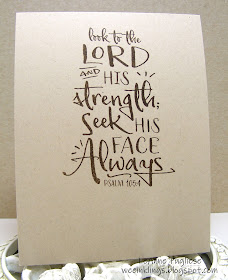 look to the
LORD
AND HIS
strength;
Seek HIS
FACE
Always
PSALM 105:4
Pugliese
weeinklings.blogspot.com